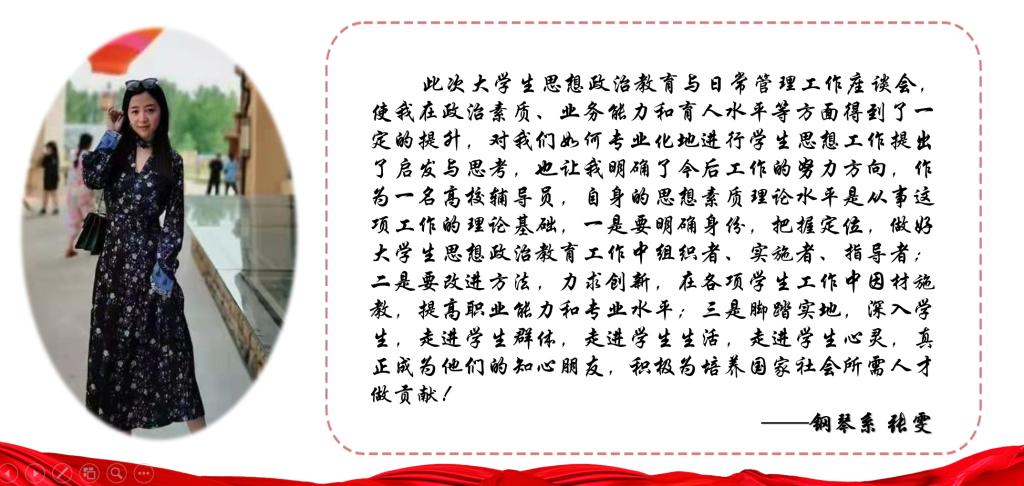 此次大学生思想政治教育与日常管理工作座谈会，
使我在政治素质、业务能力和育人水平等方面得到了一
定的提升，对我们如何专业化地进行学生思想工作提出
了启发与思考，也让我明确了今后工作的努力方向，作
为一名高校辅导员，自身的思想素质理论水平是从事这
项工作的理论基础，一是要明确身份，把握定位，做好
大学生思想政治教育工作中组织者、实施者、指导者；
二是要改进方法，力求创新，在各项学生工作中因材施
教，提高职业能力和专业水平；三是脚踏实地，深入学
生，走进学生群体，走进学生生活，走进学生心灵，真
正成为他们的知心朋友，积极为培养国家社会所需人才
做贡献！
——钢琴系 张雯